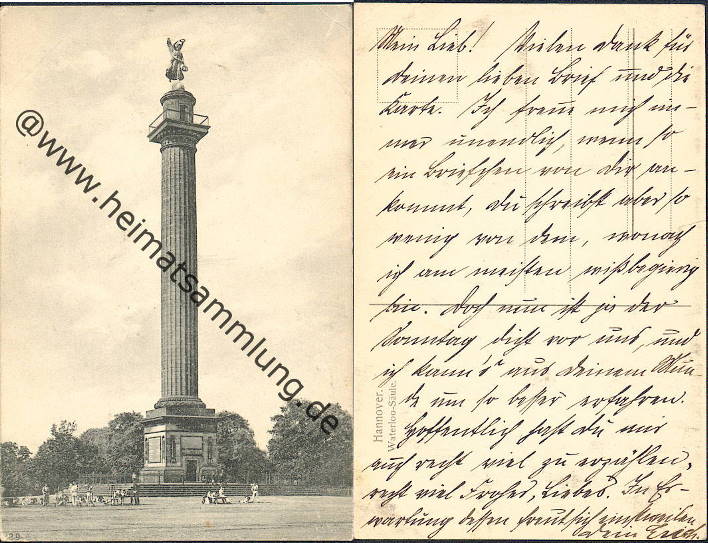 @www.heimatsammlung.de
29
Mein Lieb! Vielen Dank für
deinen lieben Brief und die
Karte. Ich freue mich im-
mer unendlich, wenn so
ein Briefchen von Dir an-
kommt, Du schreibst aber so
wenig von dem, wonach
ich am meisten wißbegierig
bin. Doch nun ist ja der
Sonntag dicht vor uns, und
ich kann's aus deinem Mun-
de um so besser erfahren.
Hoffentlich hast Du mir
auch recht viel zu erzählen,
recht viel Frohes, Liebes. In Er-
wartung dessen freut sich einstweilen
Dein Erich.
Hannover.
Waterloo-Säule.